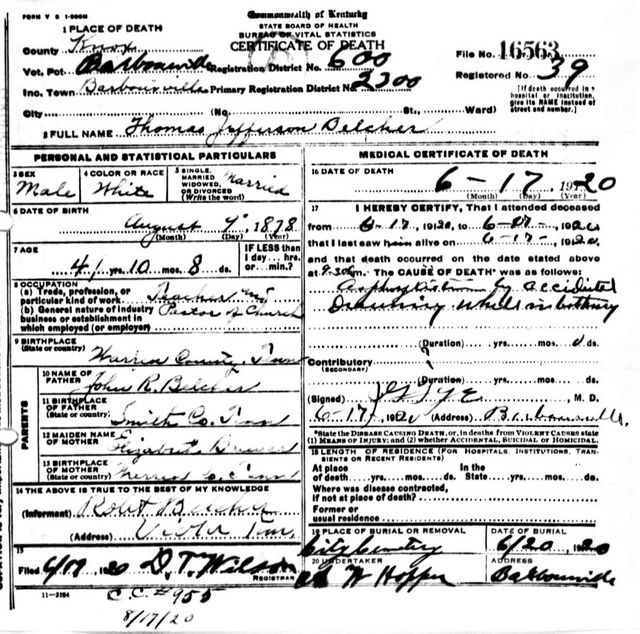 FORM V S 1-500M
Commonwealth of Kentucky
STATE BOARD OF HEALTH
BUREAU OF VITAL STATISTICS
CERTIFICATE OF DEATH
1 PLACE OF DEATH
County Knox
Vot. Pct Barbourville Registration District No. 600
Inc. Town Barbourville Primary Registration District No. 2300
File No. 16563
Registered No. 39
City (No St., Ward)
[If death occurred in a hospital or institution, give its NAME instead of street and number.]
2 FULL NAME Thomas Jefferson Belcher
PERSONAL AND STATISTICAL PARTICULARS
3 SEX Male
4 COLOR OR RACE White
5 SINGLE, MARRIED WIDOWED, OR DIVORCED (Write the word) Married
6 DATE OF BIRTH
August 9, 1878
(Month) (Day) (Year)
7 AGE
41 yrs. 10 mos. 8 ds.
IF LESS than 1 day... hrs. or... min.?
8 OCCUPATION
(a) Trade, profession, or particular kind of work
(b) General nature of industry business or establishment in which employed (or employer) Pastor of Church
9 BIRTHPLACE
(State or country) Warren County, Tenn
PARENTS
10 NAME OF FATHER John R. Belcher
11 BIRTHPLACE OF FATHER (State or country) Smith Co. Tenn
12 MAIDEN NAME OF MOTHER Elizabeth
13 BIRTHPLACE OF MOTHER (State or country) Warren Co. Tenn
14 THE ABOVE IS TRUE TO THE BEST OF MY KNOWLEDGE
(Informent) Robt Belcher
(Address) Tenn.
15
Filed 6/18, 1920 D. T. Wilson
REGISTRAR
11-3184
C.C.#955
8/17/20
MEDICAL CERTIFICATE OF DEATH
16 DATE OF DEATH
6-17, 1920
(Month) (Day) (Year)
17 I HEREBY CERTIFY, That I attended deceased
from 6-17, 1920, to 6-17-, 1920
that I last saw him alive on 6-17-, 1920,
and that death occurred on the date stated above
at 9.30 m. The CAUSE OF DEATH* was as follows:
by accidental
Drowning while in bathing
(Duration) yrs. mos. ds.
Contributory
(SECONDARY)
(Duration) yrs. mos. ds.
(Signed) , M. D.
6-17, 1920 (Address) Barbourville.
*State the DISEASE CAUSING DEATH, or, in deaths from VIOLENT CAUSES state (1) MEANS OF INJURY; and (2) whether ACCIDENTAL, SUICIDAL or HOMICIDAL.
18 LENGTH OF RESIDENCE (FOR HOSPITALS, INSTITUTIONS, TRANSIENTS OR RECENT RESIDENTS)
At place of death yrs. mos. ds. In the State yrs. mos. ds.
Where was disease contracted, if not at place of death?
Former or usual residence
19 PLACE OF BURIAL OR REMOVAL City Cemetery
DATE OF BURIAL 6/20, 1920
20 UNDERTAKER W Hopper
ADDRESS Barbourville